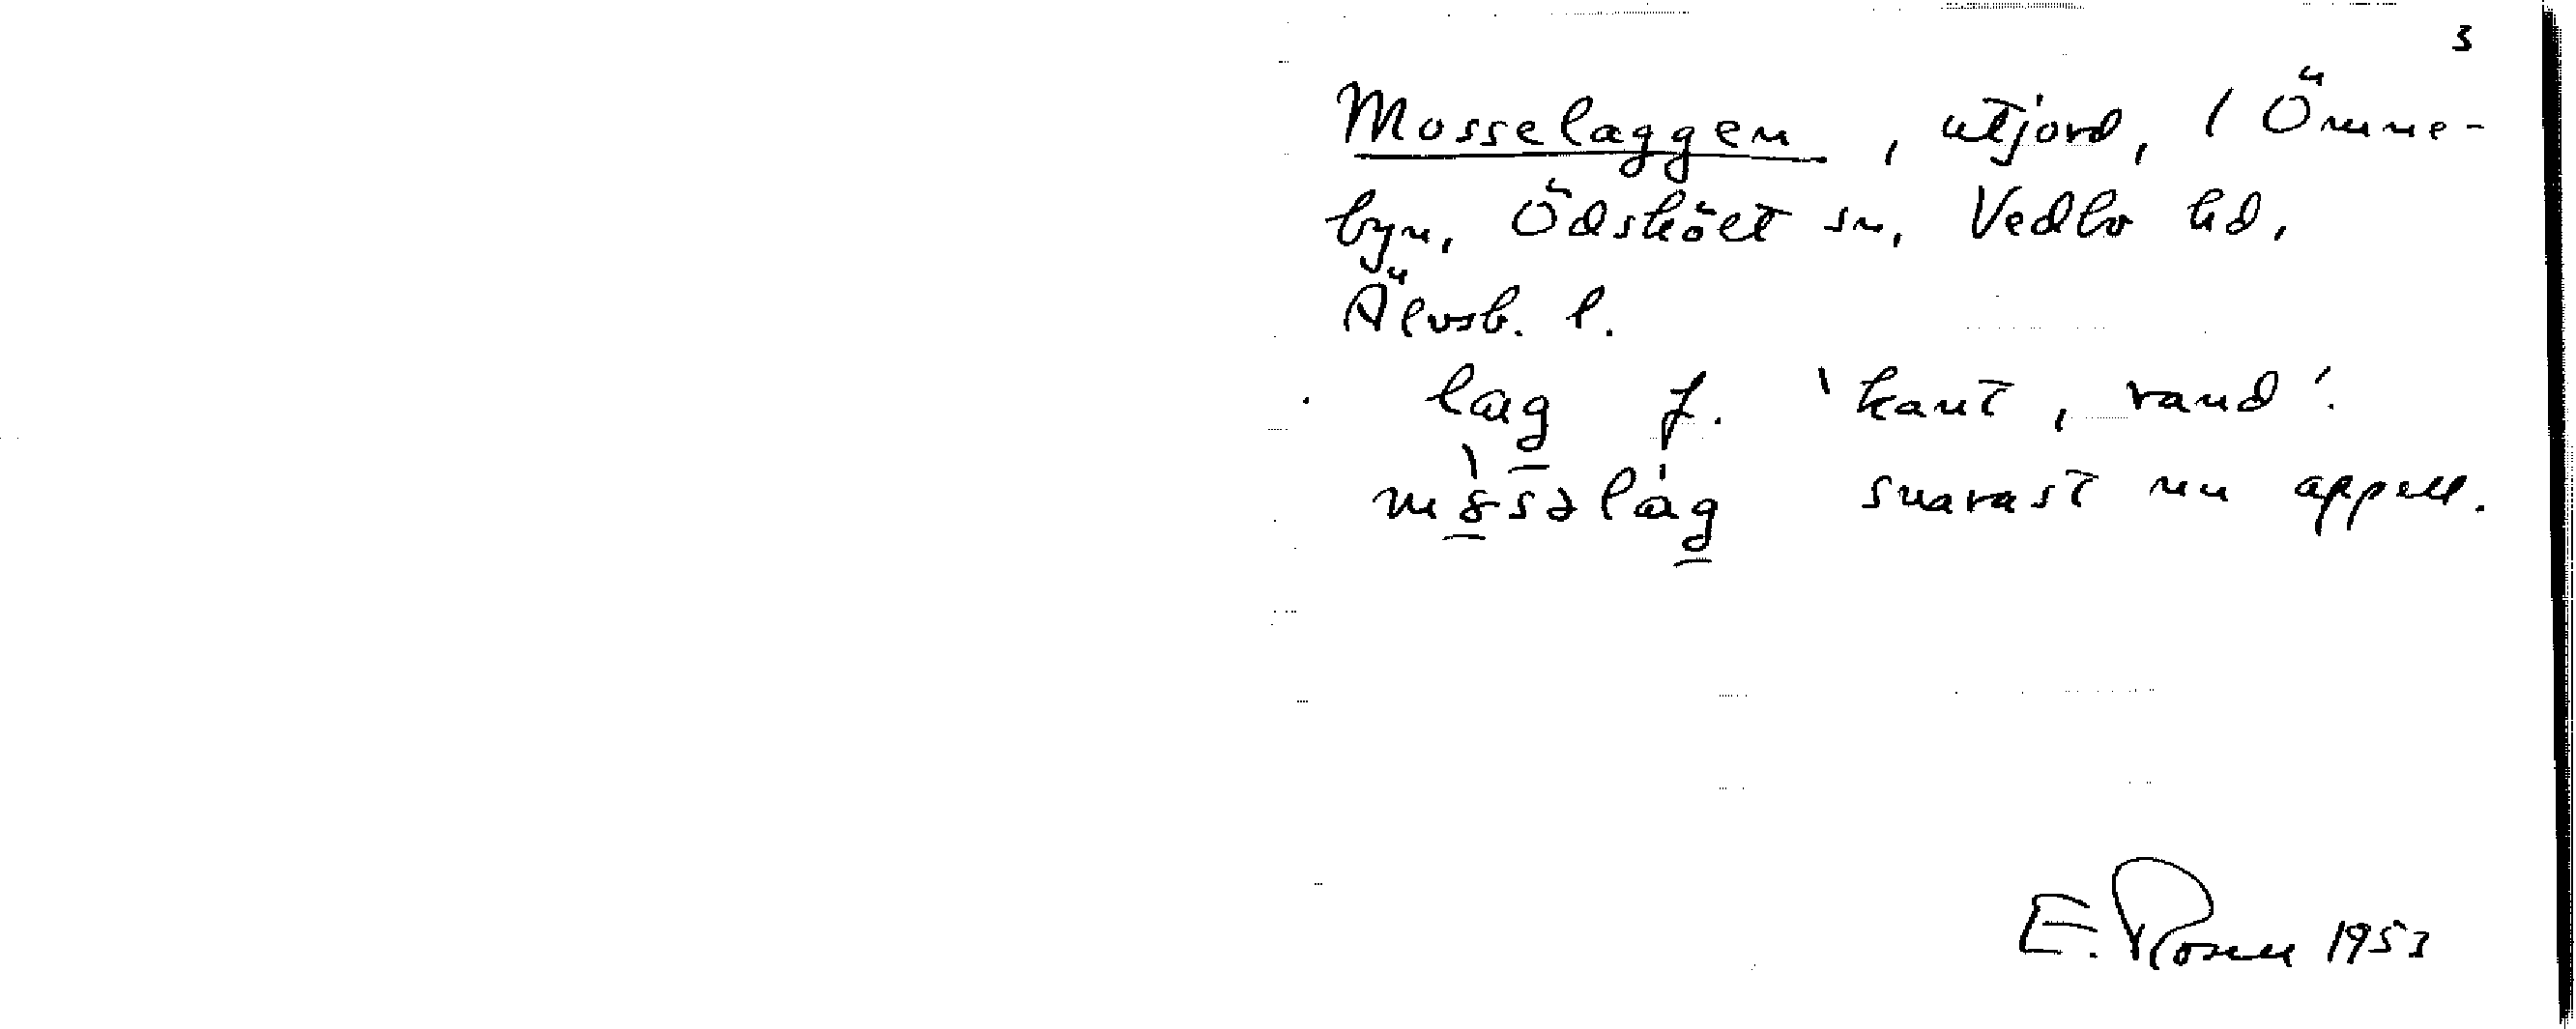 3
Mosselaggen, utjord, 1 Ömme-
byn, Ödskölt sn, Vedbo hd,
Älvsb. l.
lag f. 'kant, rand'.
snarast nu appell.
E. Rosell 1953